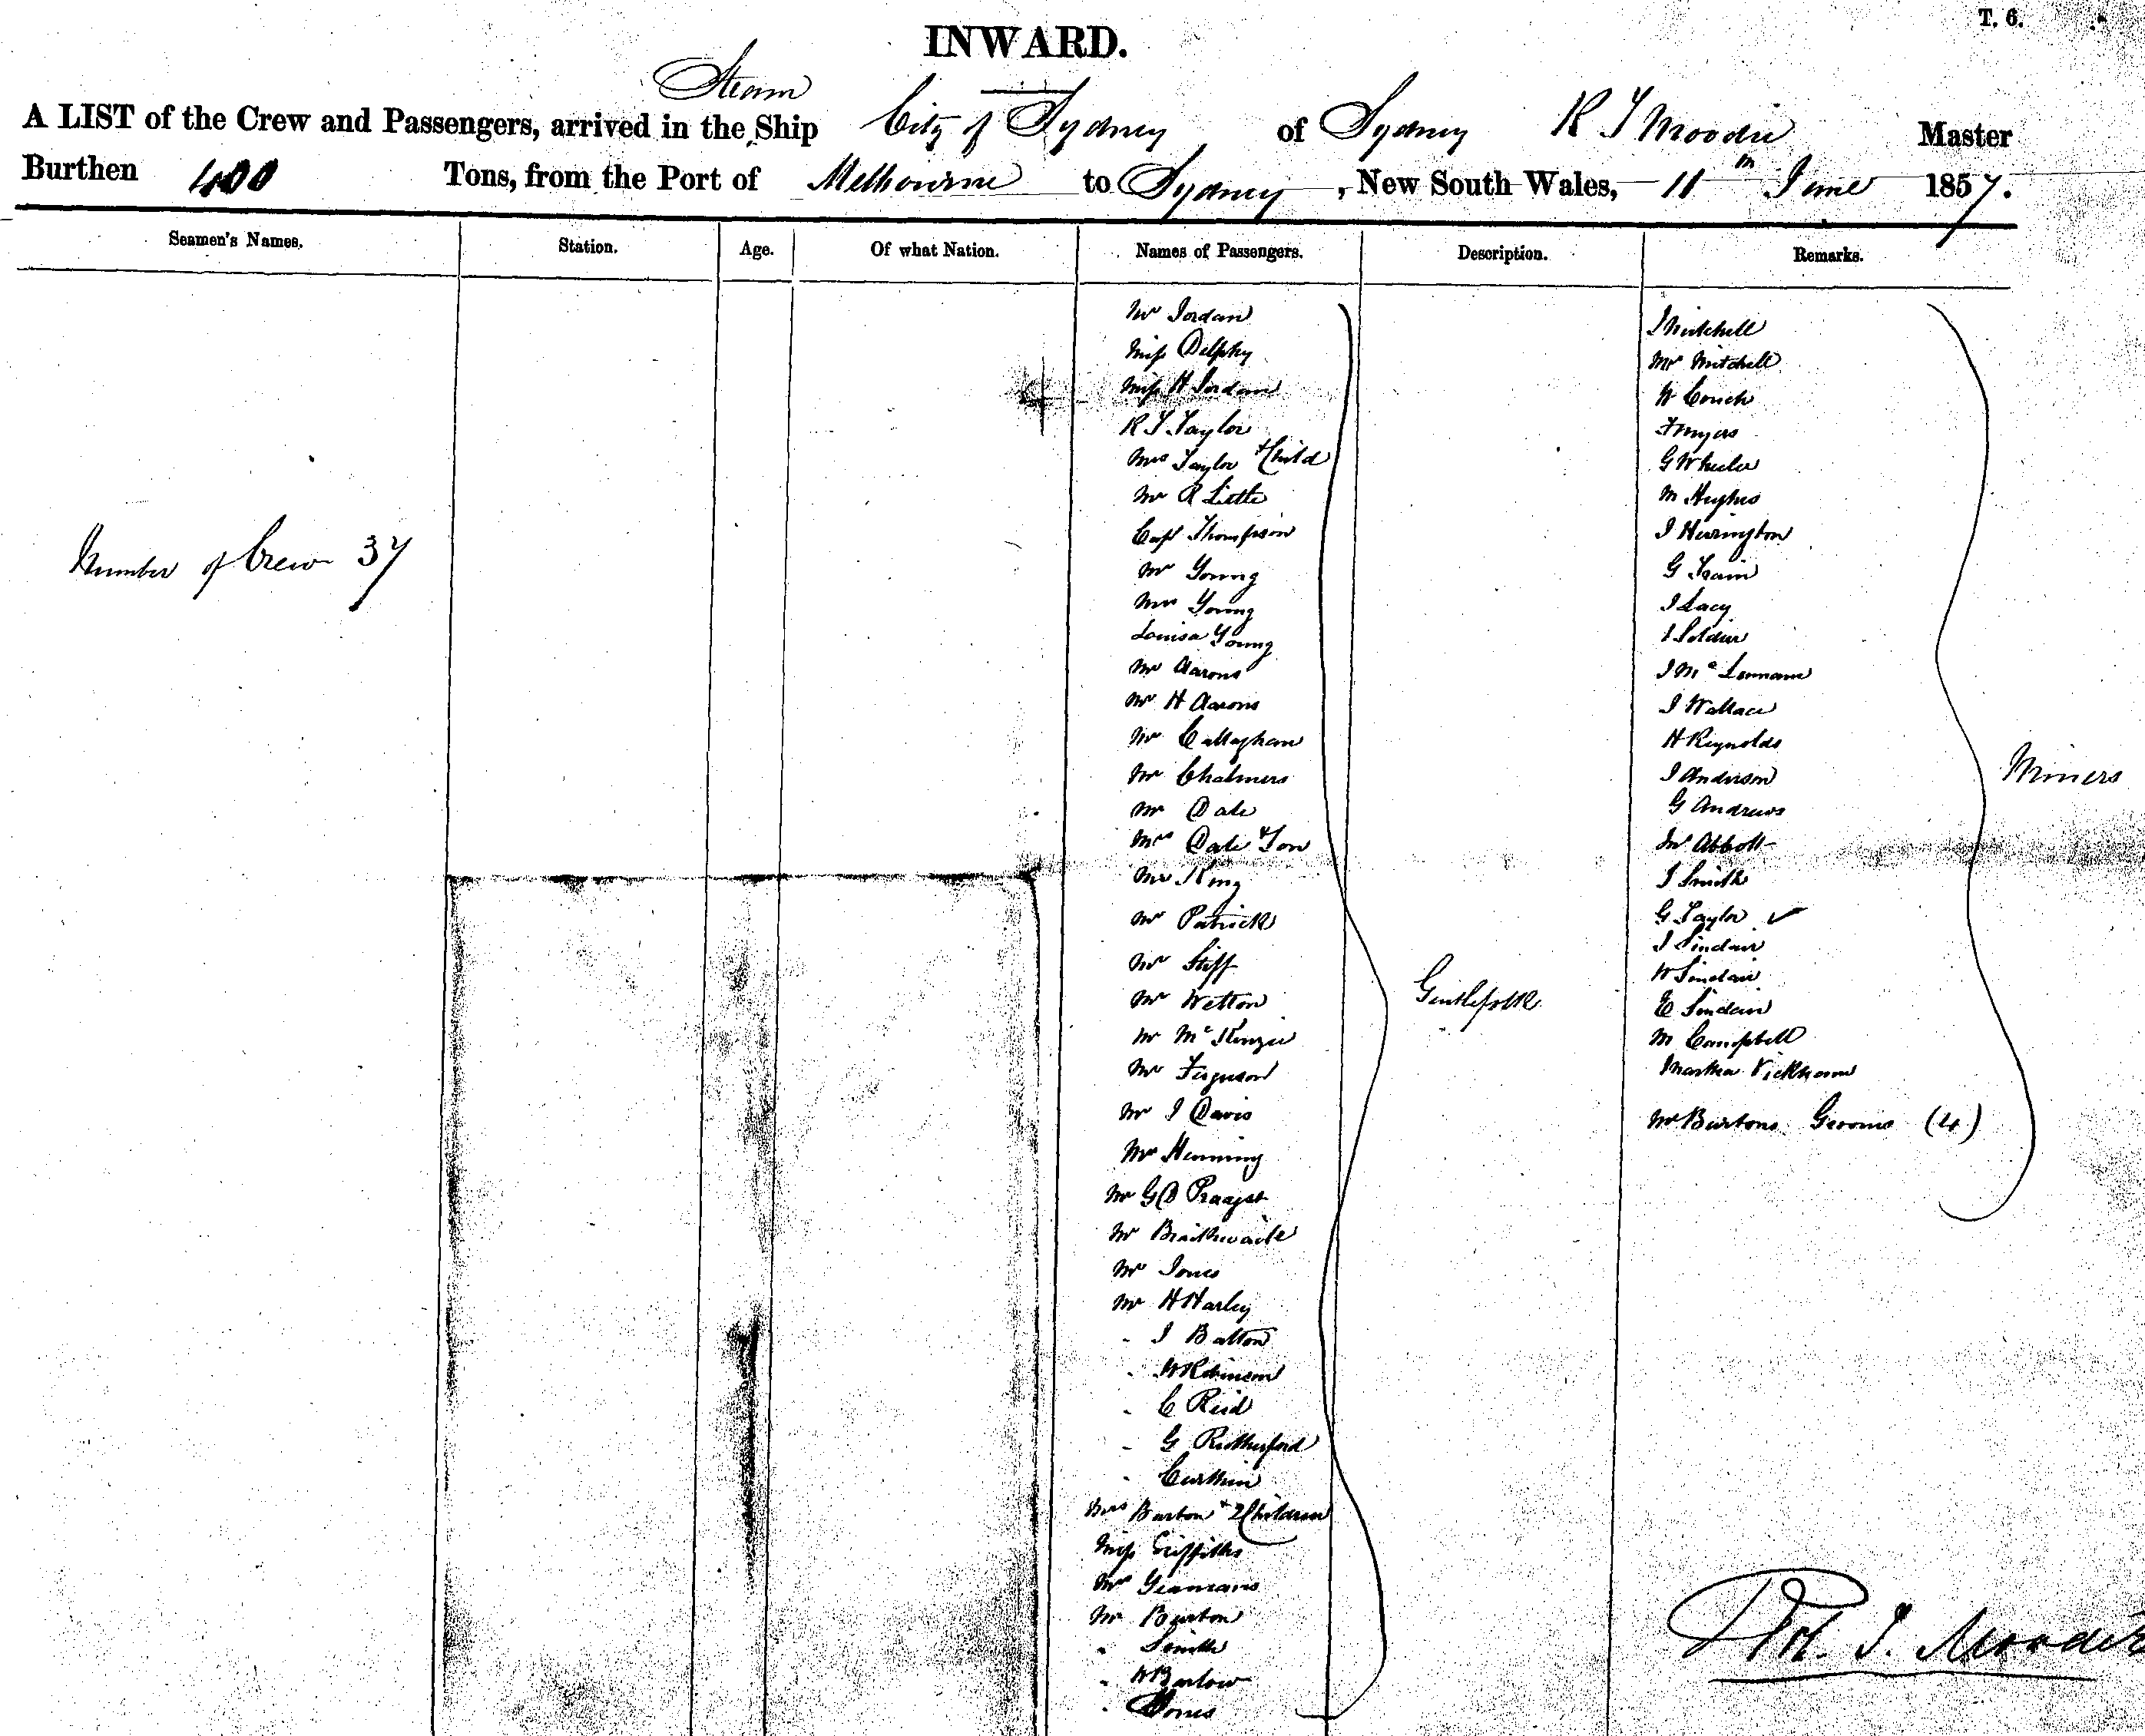 T. 6.
INWARD.
Steam
A LIST of the Crew and Passengers, arrived in the Ship City of Sydney of Sydney R T Moodie Master
Burthen 400 Tons, from the Port of Melbourne to Sydney, New South Wales, 11th June 1857.
Seamen's Names. Station. Age. Of what Nation. Names of Passengers. Description. Remarks.
Number of Crew 37
Mr Jordan
Miss Delphy
Miss H Jordan
R T Taylor
Mrs Taylor & Child
Mr R Little
Capt Thompson
Mr Young
Mrs Young
Louisa Young
Mr Aarons
Mr H Aarons
Mr Callaghan
Mr Chalmers
Mr Dale
Mrs Dale & Son
Mr King
Mr Patrick
Mr Stiff
Mr Wetton
Mr McKenzie
Mr Ferguson
Mr J Davis
Mr Henning
Mr G D
Mr Braithwaite
Mr Jones
Mr H Harley
" J Batton
" W Robinson
" C Reid
" G Rutherford
"
Mrs Burton & 2 Children
Miss Griffiths
Mr Yeamans
Mr Burton
" Smith
" W Barlow
" Jones
Gentlefolk
J Mitchell
Mr Mitchell
W Couch
F Myers
G Wheeler
M Hughes
J Herrington
G Train
J Lacy
J Soldier
J McLennan
J Wallace
H Reynolds
J Anderson
G Andrews
Mr Abbott
J Smith
G Taylor ✓
J Sinclair
W Sinclair
E Sinclair
M Campbell
Martha
Mr Burtons Grooms (4)
Miners
Rt. T. Moodie